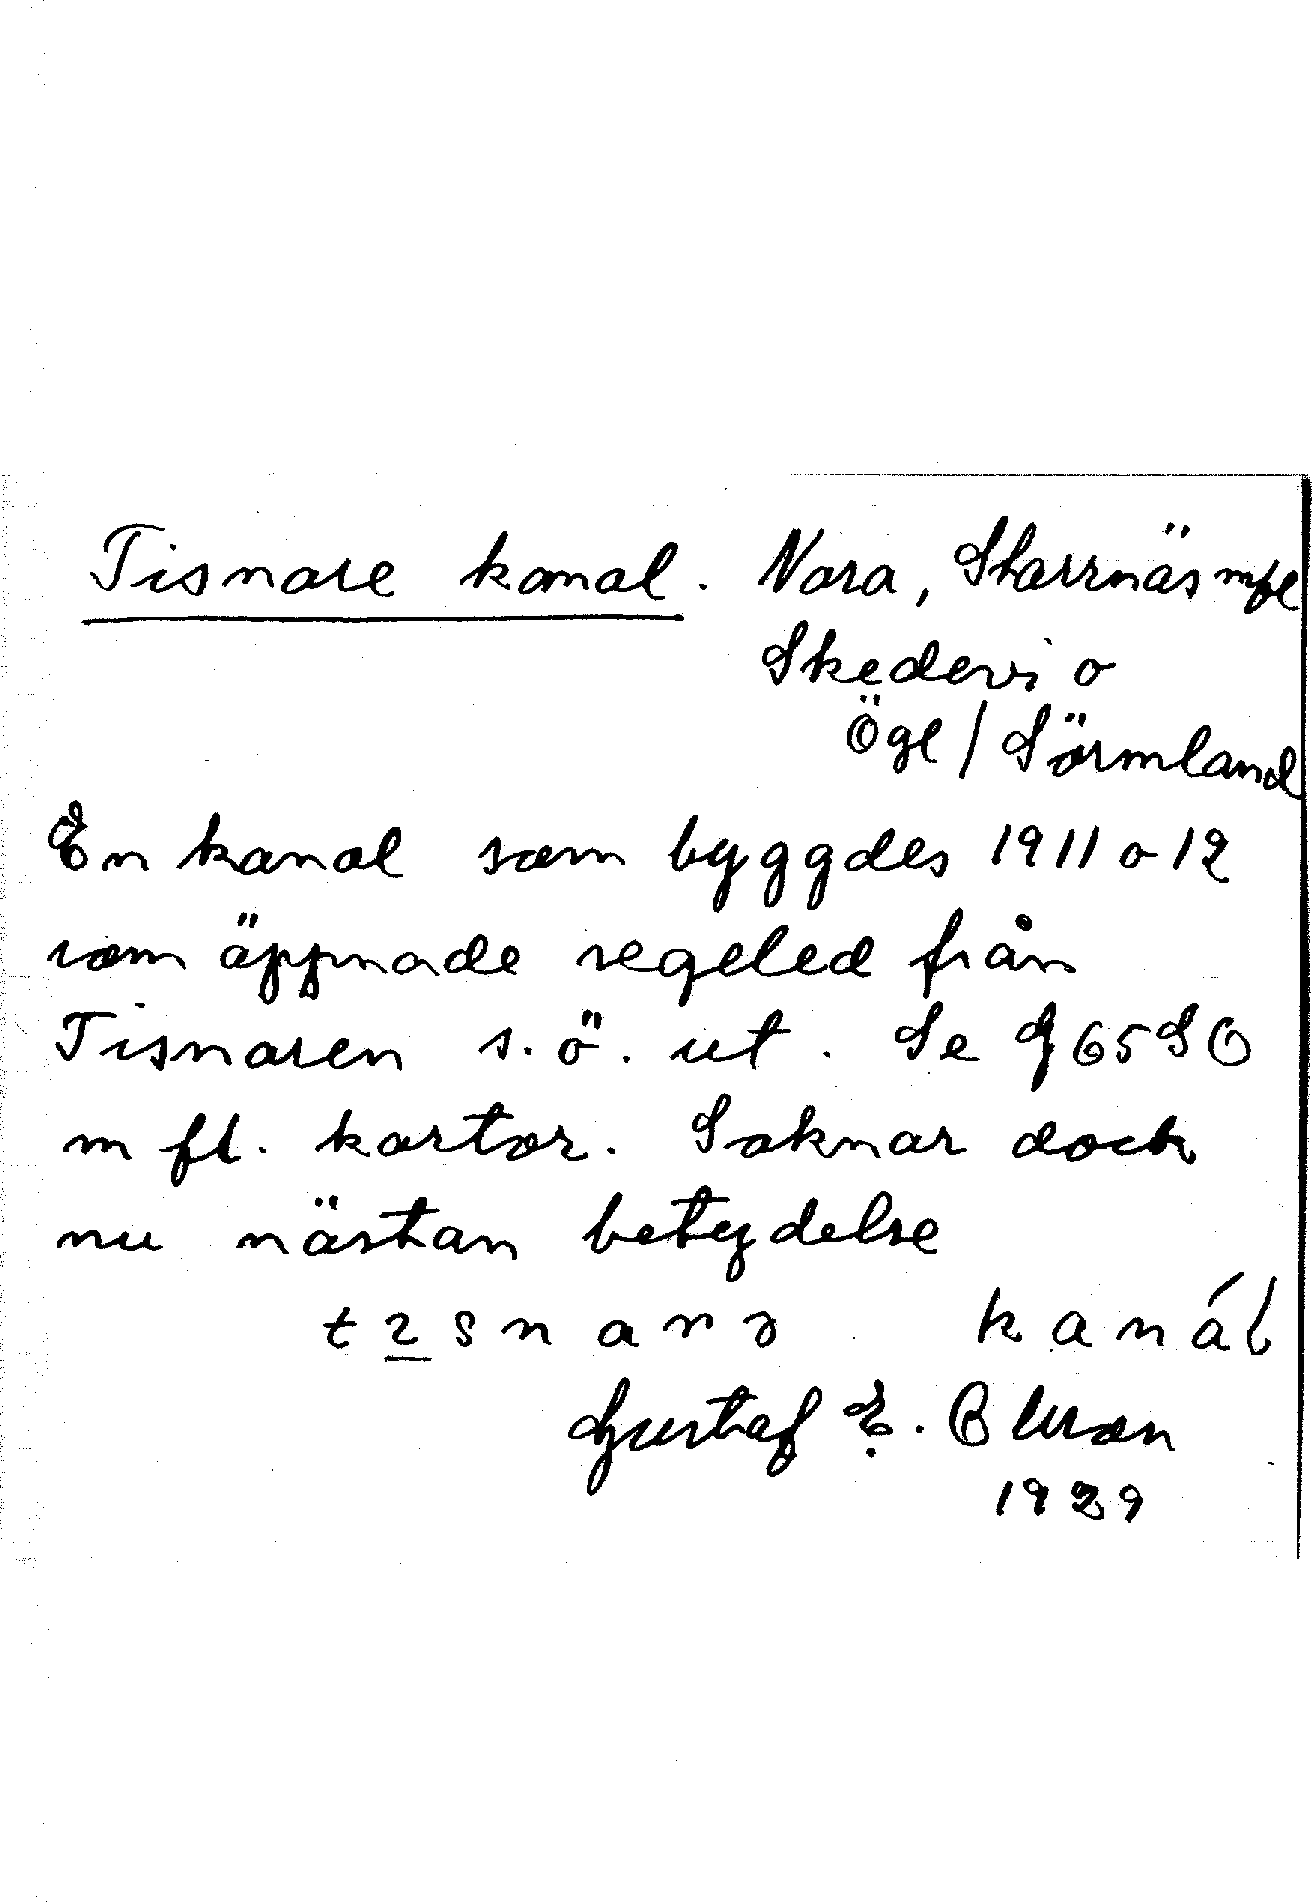 Tisnare kanal. Nora, Starrnäs mfl
Skedevi o
Ögl / Sörmland
En kanal som byggdes 1911 o 12
som öppnade segeled från
Tisnaren s.ö. ut. Se J 65 SO
m fl. kartor. Saknar dock
nu nästan betydelse
tɩsnarə kanál
Gustaf E. Ohlson
1929